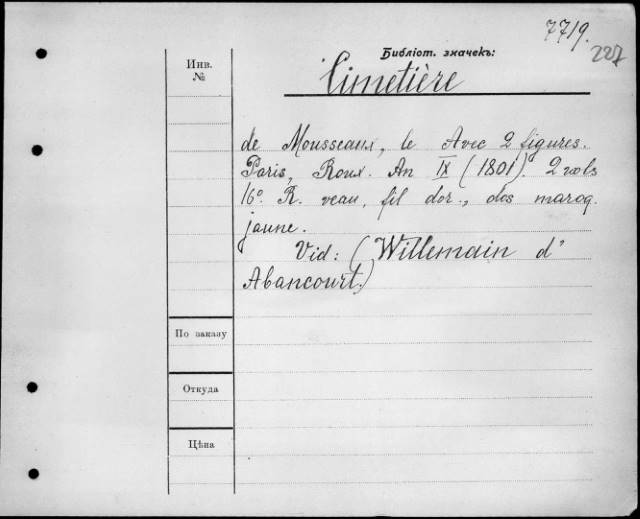 7719.
227
Библіот. значекъ:
Инв.
№
Cimetière
de Mousseaux, le Avec 2 figures.
Paris, Roux. An IX (1801). 2 vols
16º. R. veau, fil dor., dos maroq.
jaune.
Vid: (Willemain d'
Abancourt.)
По заказу
Откуда
Цѣна